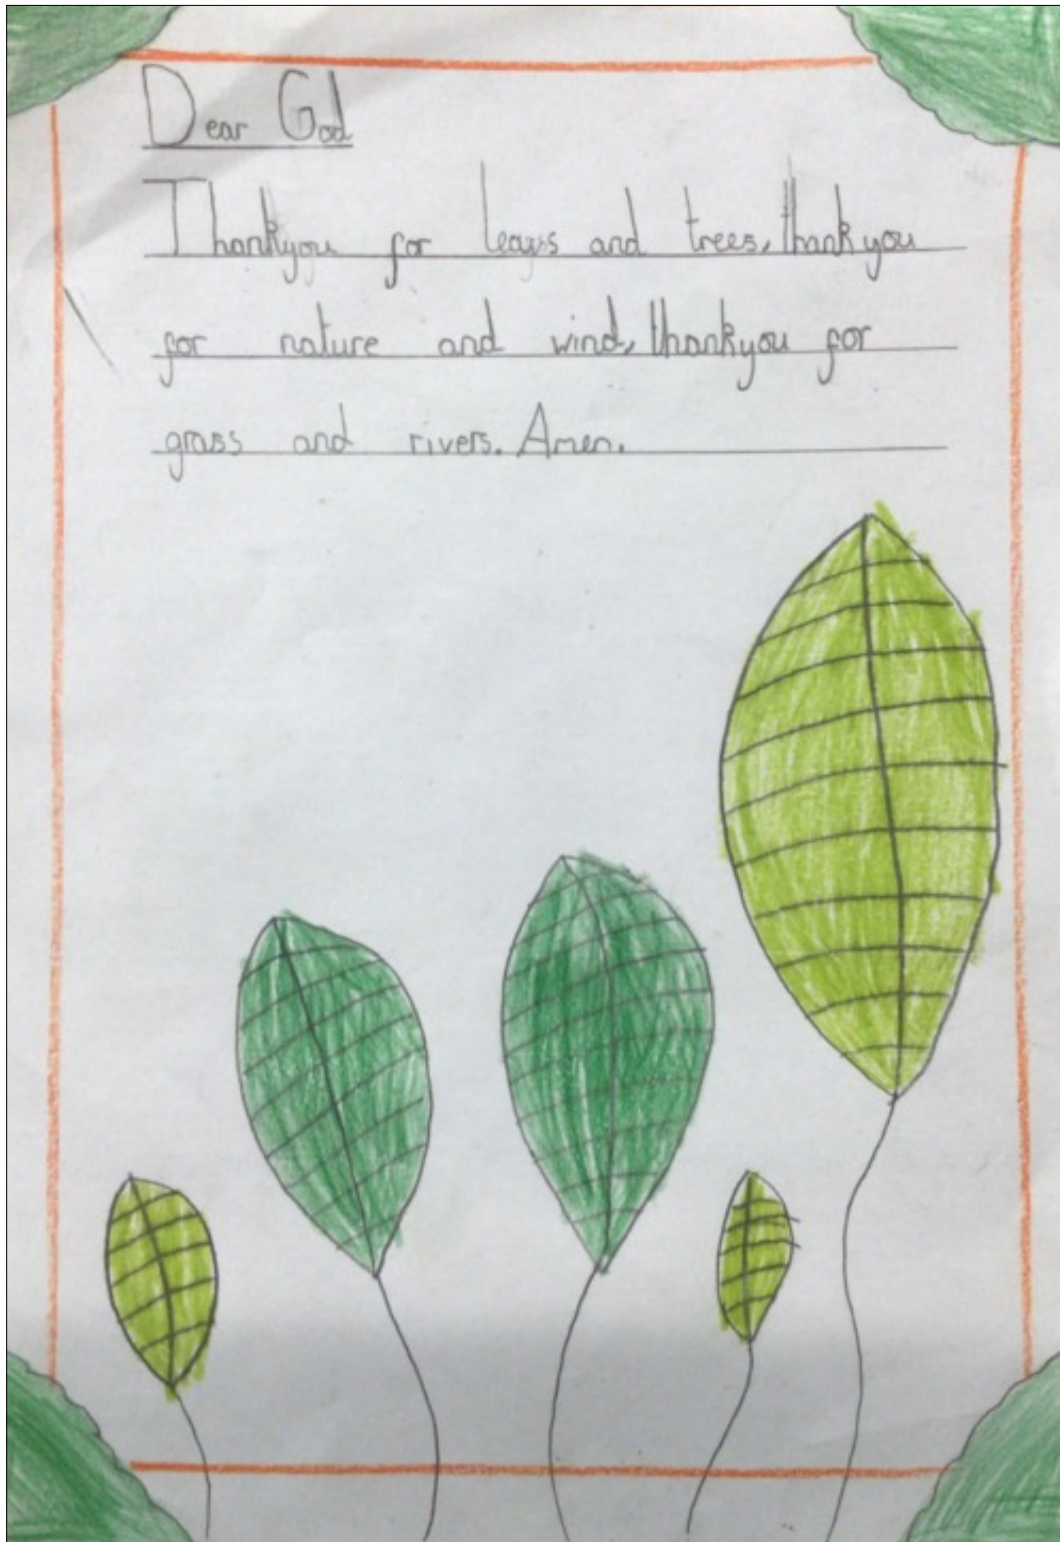 Dear God
Thankyou for leavs and trees, thank you
for nature and wind, thankyou for
grass and rivers. Amen.